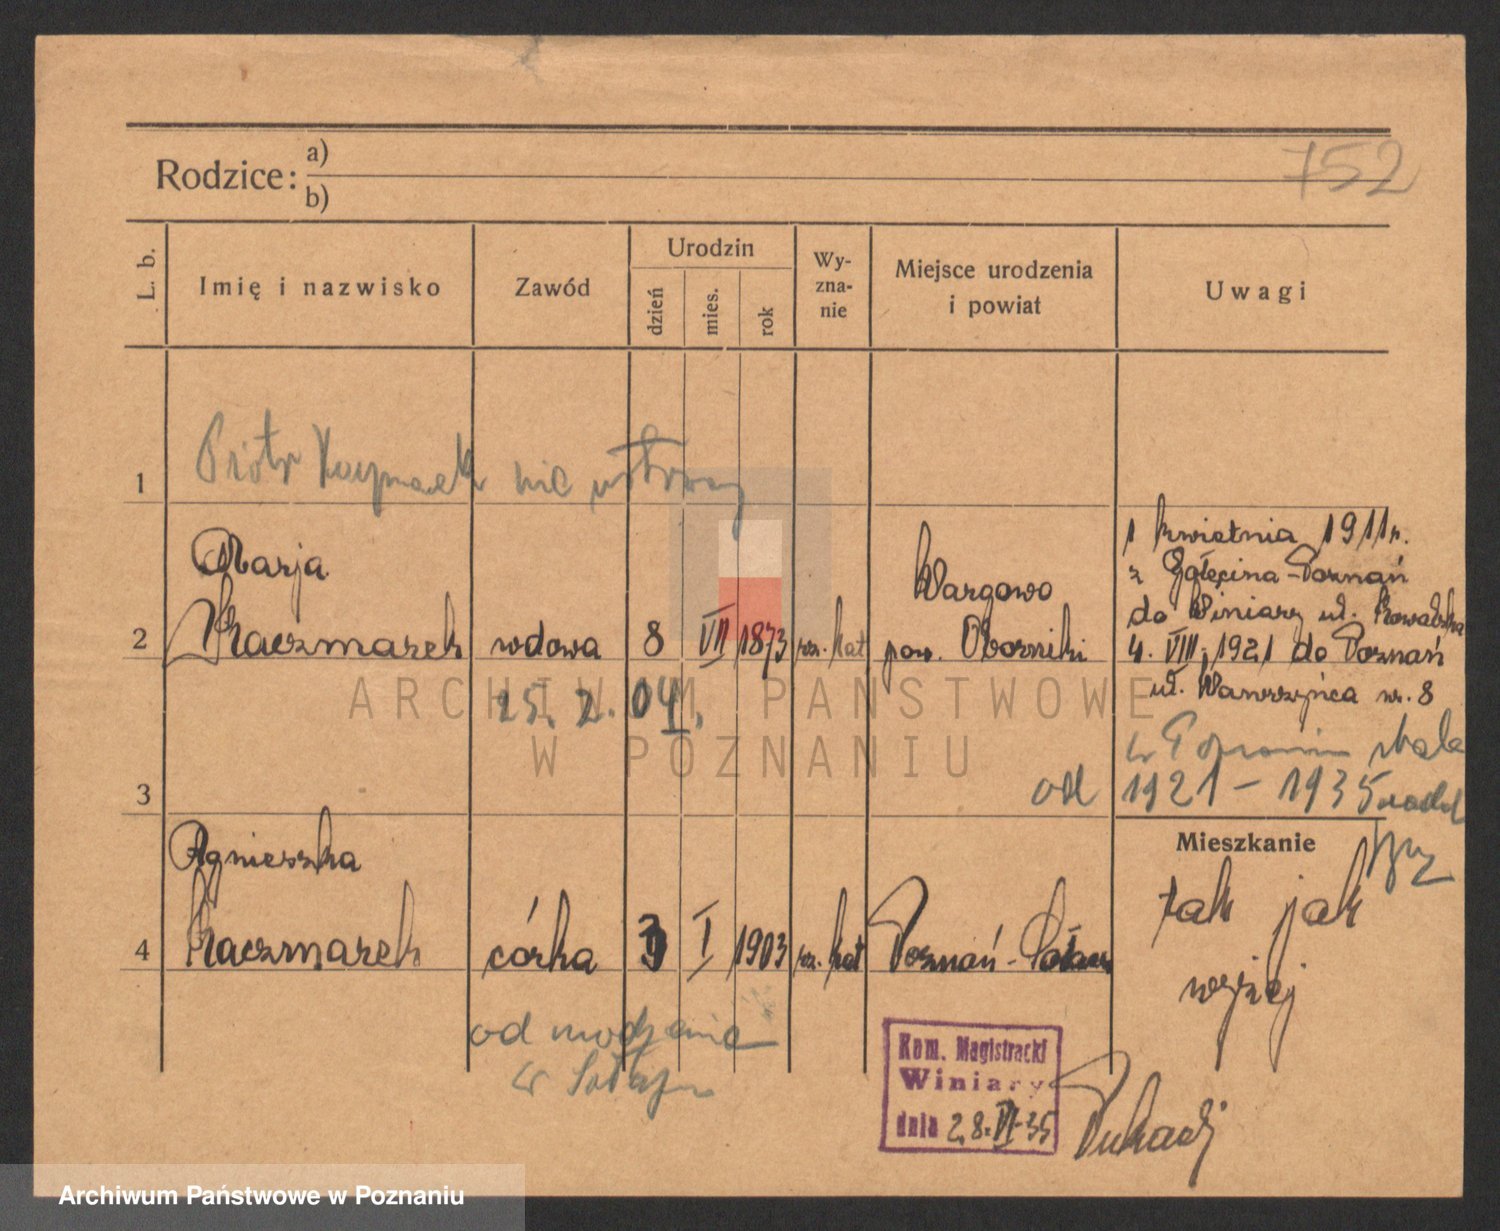 752
Rodzice: a)
b)
L. b.
Imię i nazwisko
Zawód
Urodzin
dzień
mies.
rok
Wy-
zna-
nie
Miejsce urodzenia
i powiat
Uwagi
1
Piotr Kaczmarek nic
2
Marja
Kaczmarek wdowa 8 VII 1873 rz. kat
Wargowo
pow. Oborniki
1 kwietnia 1911 r.
z Gołęcina-Poznań
do Winiary ul.
4. VIII, 1921 do Poznań
ul. Wawrzyńca nr. 8
25. 2. 04.
3
od 1921 – 1935
Mieszkanie
tak jak
wyżej
4
Agnieszka
Kaczmarek córka 3 I 1903 rz. kat Poznań-Sołacz
od urodzenia
w Sołaczu
Kom. Magistracki
Winiary
dnia 28. VI 35
ARCHIWUM PAŃSTWOWE
W POZNANIU
Archiwum Państwowe w Poznaniu